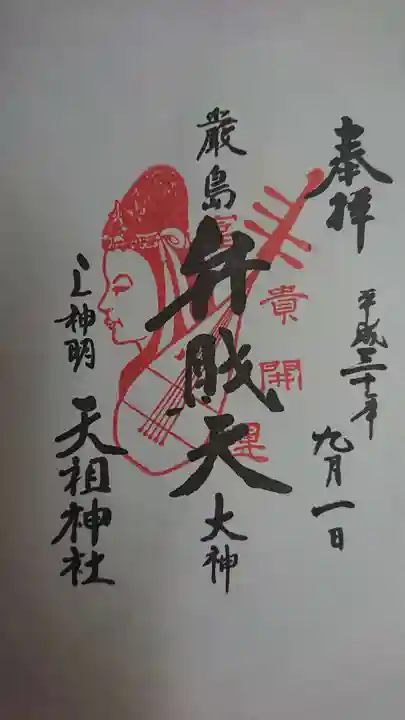 奉拝
平成三十年
九月一日
厳島
弁財天
大神
富貴開運
上神明
天祖神社